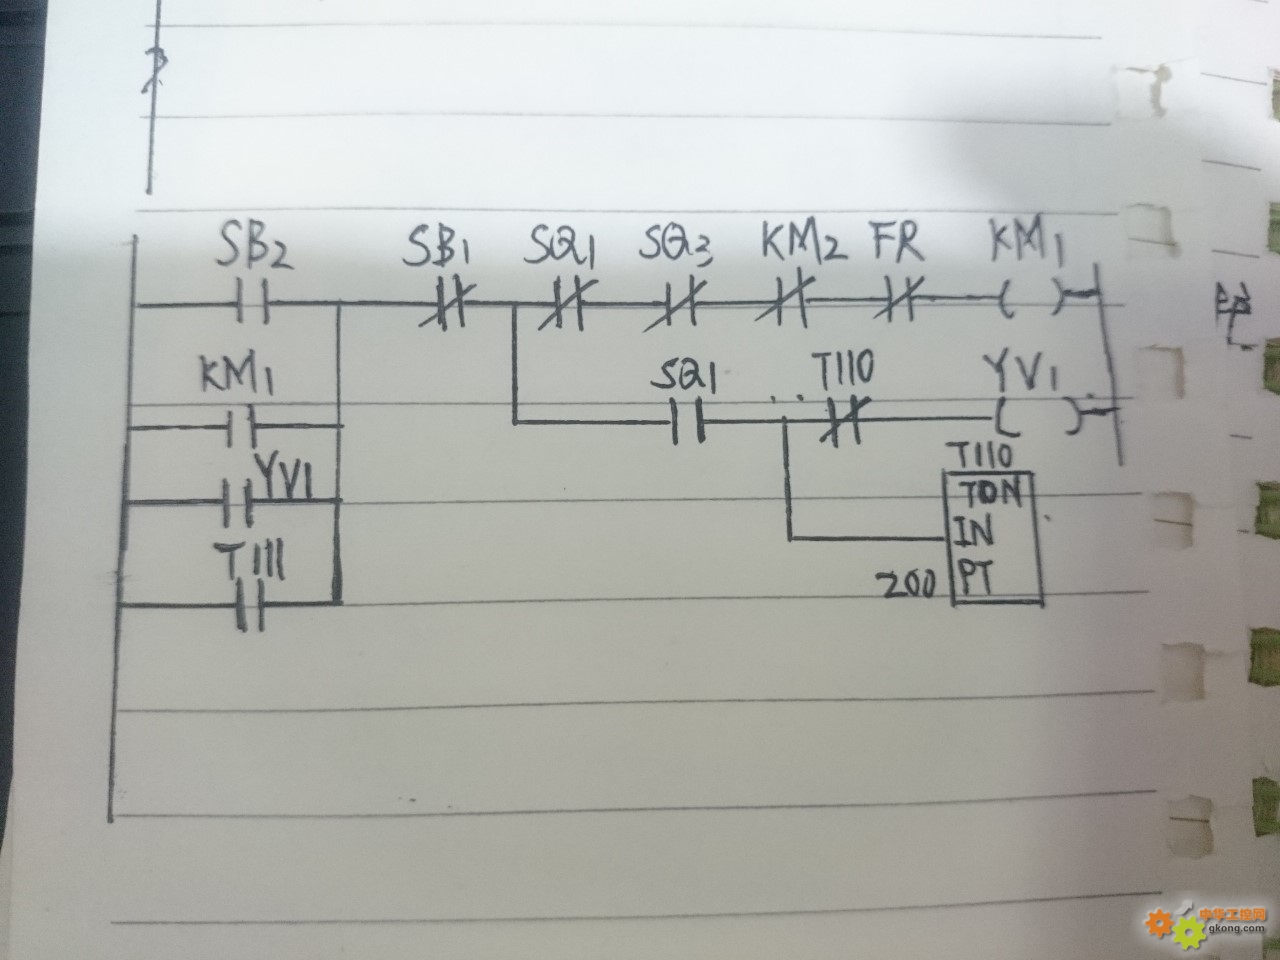 SB2 SB1 SQ1 SQ3 KM2 FR KM1
KM1 SQ1 T110 YV1
YV1 T110
TON
IN
T111
200 PT
中华工控网
gkong.com